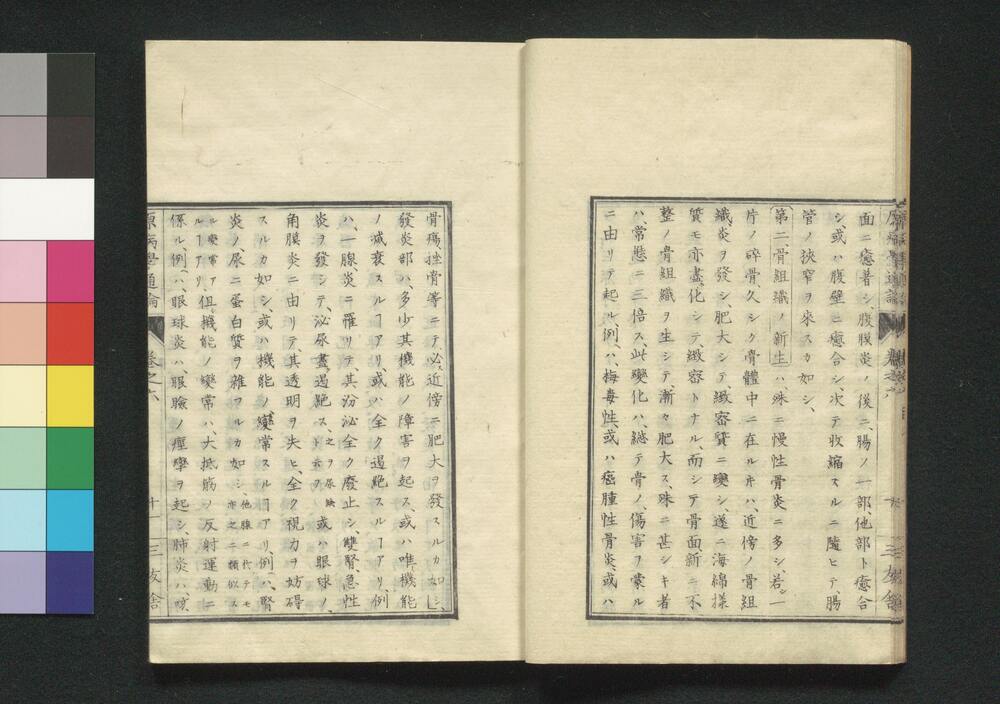 面ニ癒著シ、腹膜炎ノ後ニ、腸ノ一部、他部ト癒合
シ、或ハ腹壁ニ癒合シ、次テ收縮スルニ隨ヒテ、腸
管ノ狹窄ヲ來スカ如シ、
第二、骨組織ノ新生ハ、殊ニ慢性骨炎ニ多シ、若シ一
片ノ碎骨、久シク骨體中ニ在ルキハ、近傍ノ骨組
織、炎ヲ發シ、肥大シテ、緻密質ニ變シ、遂ニ海綿樣
質モ亦盡ク化シテ、緻密トナル、而シテ骨面、新ニ不
整ノ骨組織ヲ生シテ、漸々肥大ス、殊ニ甚シキ者
ハ、常態ニ三倍ス、此變化ハ、總テ骨ノ傷害ヲ蒙ル
ニ由リテ起ル、例ハ、梅毒性、或ハ癌腫性骨炎、或ハ
骨瘍、挫骨等ニテ、必ス近傍ニ肥大ヲ發スルカ如シ、
發炎部ハ、多少其機能ノ障害ヲ起ス、或ハ唯機能
ノ減衰スルヿアリ、或ハ全ク遏絶スルヿアリ、例
ハ、一腺、炎ニ罹リテ、其汾泌全ク廢止シ、雙腎、急性
炎ヲ發シテ、泌尿盡ク遏絶ス、之ヲ尿缺ト云フ或ハ眼球ノ、
角膜炎ニ由リテ、其透明ヲ失ヒ、全ク視力ヲ妨碍
スルカ如シ、或ハ機能ノ變常スルヿアリ、例ハ、腎
炎ノ、尿ニ蛋白質ヲ雜フルカ如シ、他腺ニ代テモ亦之ニ類似ス
ル變常アルヿアリ、但機能ノ變常ハ、大抵筋ノ反射運動ニ
係ル、例ハ、眼球炎ハ、眼瞼ノ痙攣ヲ起シ、肺炎ハ咳
原病學通論 卷之六 十 三友舍